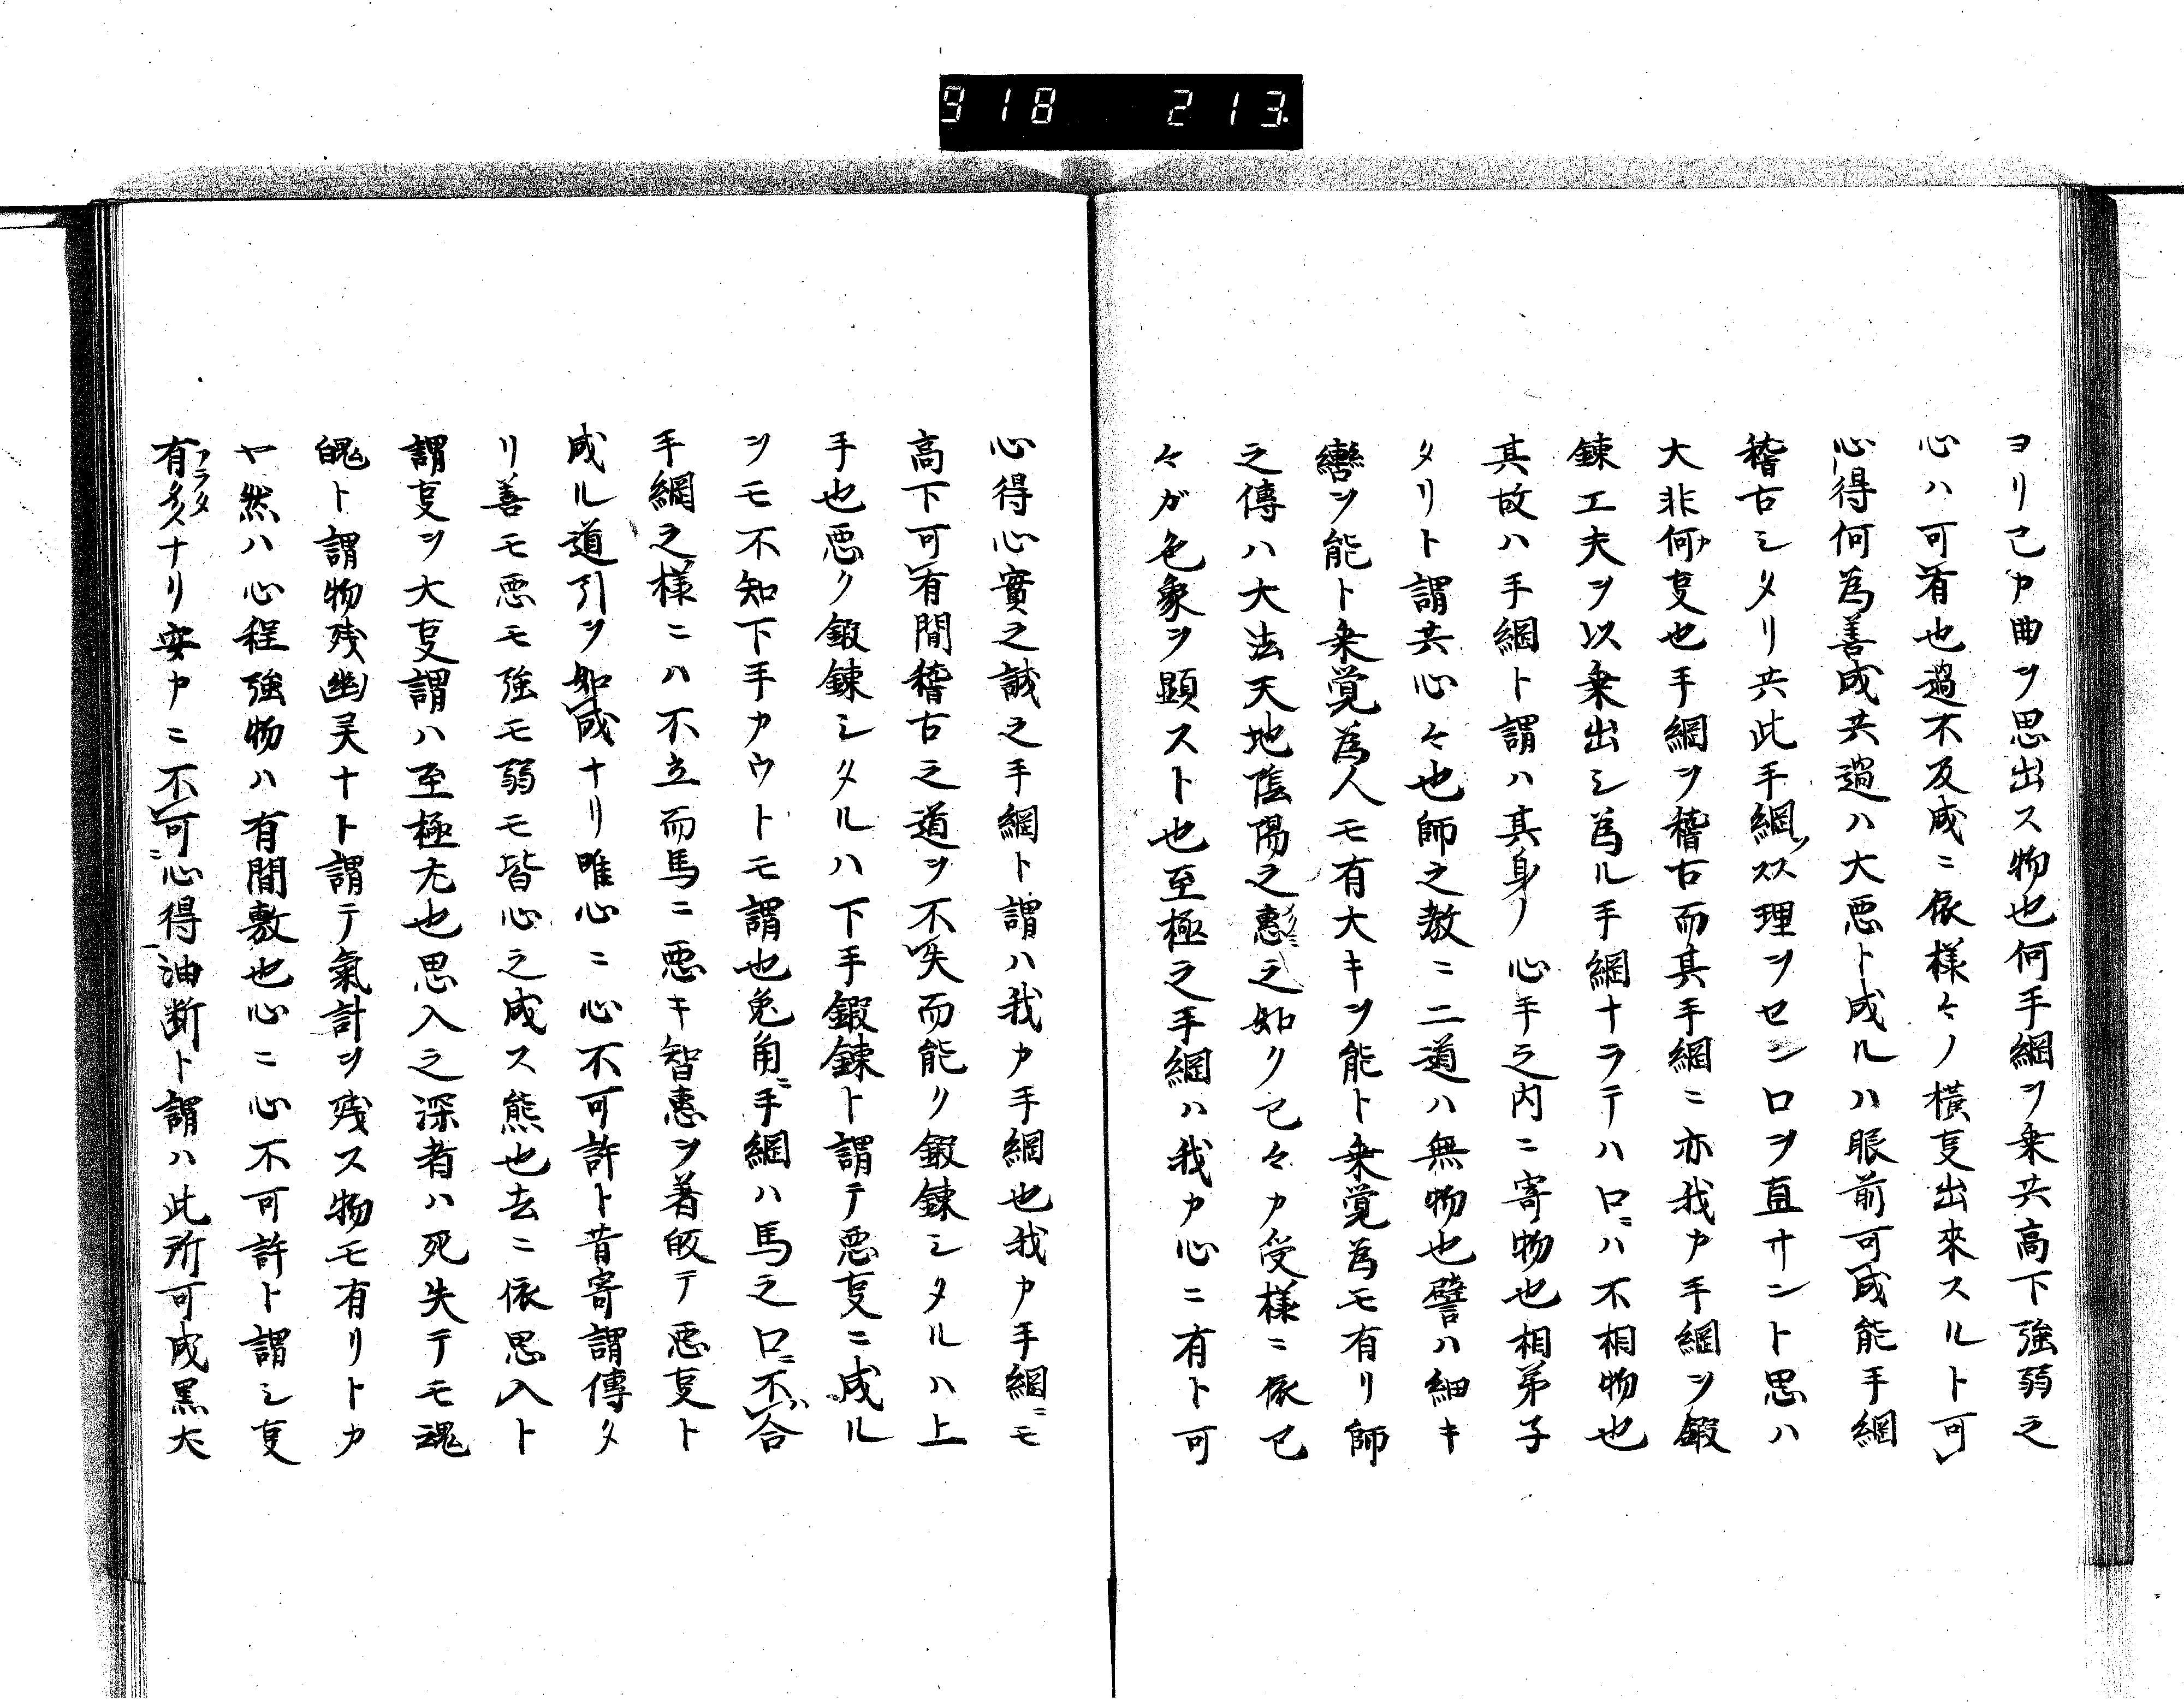 918 213.
ヨリ己カ曲ヲ思出ス物也何手綱ヲ乗共高下強弱之
心ハ可有也過不及成ニ依様々ノ横叓出來スルト可
心得何為善成共過ハ大悪ト成ルハ眼前可成能手綱
稽古シタリ共此手綱ヽススヽ理ヲセシ口ヲ直サント思ハ
大非何叓也手綱ヲ稽古而其手綱ニ亦我カ手綱ヲ鍛
錬工夫ヲ以乗出シ為ル手綱ナラテハ口ニハ不相物也
其故ハ手綱ト謂ハ其身ノ心手之内ニ寄物也相弟子
タリト謂共心々也師之教ニ二道ハ無物也譬ハ細キ
轡ヲ能ト乗覚為人モ有大キヲ能ト乗覚為モ有リ師
之傳ハ大法天地陰陽之惠之如ク己々カ受様ニ依己
々ガ色象ヲ顕スト也至極之手綱ハ我カ心ニ有ト可
心得心實之誠之手綱ト謂ハ我カ手綱也我カ手綱ニモ
高下可有間稽古之道ヲ不失而能ク鍛錬シタルハ上
手也悪ク鍛錬シタルハ下手鍛錬ト謂テ悪叓ニ成ル
ヲモ不知下手カウトモ謂也兔角ニ手綱ハ馬之口ニ不合
手綱之様ニハ不立而馬ニ悪キ智惠ヲ着成テ悪叓ト
成ル道引ヲ如成ナリ唯心ニ心不可許ト昔寄謂傳タ
リ善モ悪モ強モ弱モ皆心之成ス熊也去ニ依思入ト
謂叓ヲ大叓謂ハ至極尤也思入之深者ハ死失テモ魂
魄ト謂物残幽灵ナト謂テ氣計ヲ残ス物モ有リトカ
ヤ然ハ心程強物ハ有間敷也心ニ心不可許ト謂シ叓
有多ナリ安カニ不可心得油断ト謂ハ此所可成黒大
アラタ